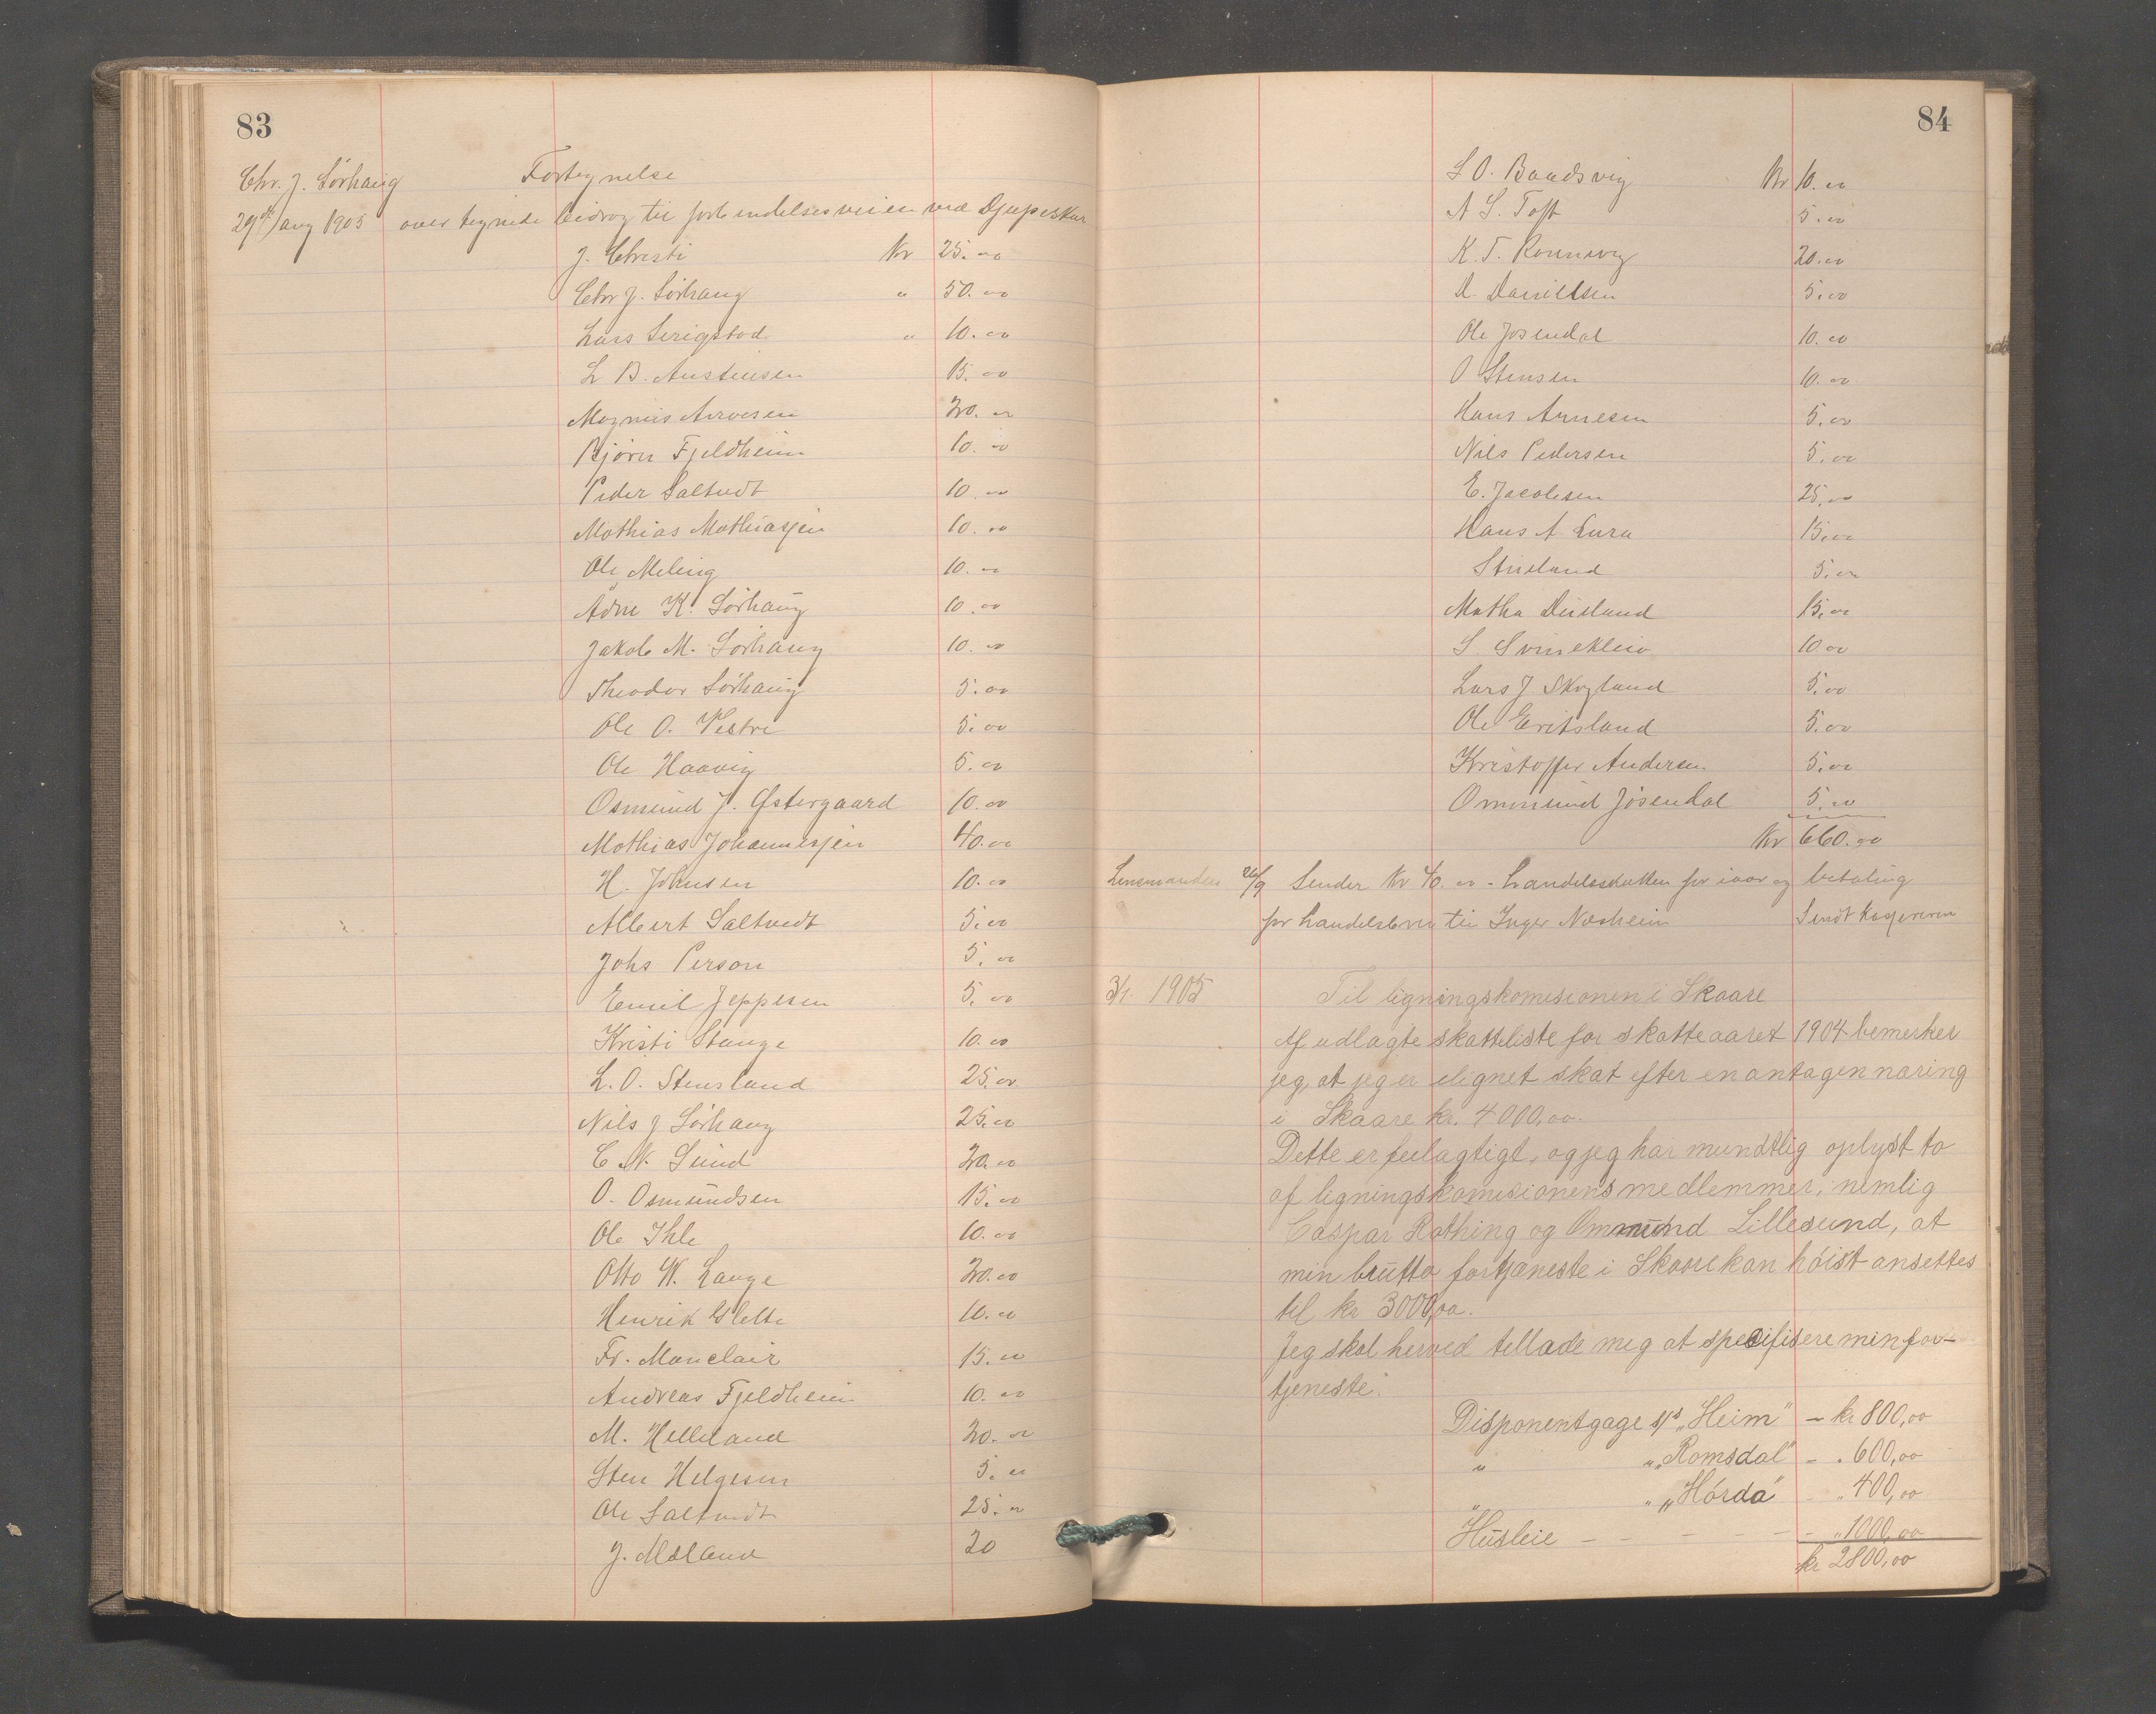 83
Chr. J. Sörhaug Fortegnelse
29de/ aug 1905 over tegnede bidrag til forbindelsesveien ved Djupeskar
J. Christi Kr 25.00
Chr J. Sörhaug " 50.00
Lars Serigstad " 10.00
L B. Austensen 15.00
Magnus Arvesen 20.00
Björn Fjeldheim 10.00
Peder Saltvedt 10.00
Mathias Mathiasjen 10.00
Ole Meling 10.00
Ådne K. Sörhaug 10.00
Jakob M. Sörhaug 10.00
Theodor Sörhaug 5.00
Ole O. Vestre 5.00
Ole Haavig 5.00
Osmund J. Østergaard 10.00
Mathias Johannesjen 40.00
H. Johnsen 10.00
Albert Saltvedt 5.00
Johs Person 5.00
Emil Jeppesen 5.00
Kristi Stange 10.00
L. O. Stensland 25.00
Nils J Sörhaug 25.00
C N. Sund 20.00
O. Osmundsen 15.00
Ole Ihle 10.00
Otto W. Lange 20.00
Henrik Slette 10.00
Fr. Monclair 15.00
Andreas Fjeldheim 10.00
M. Helleland 20.00
Sten Helgesen 5.00
Ole Saltvedt 25.00
J. Mæland 20
84
S O. Baadsvig Kr 10.00
A S. Toft 5.00
K. T. Rönnevig 20.00
D. Danielsen 5.00
Ole Josendal 10.00
O Stensen 10.00
Hans Arnesen 5.00
Nils Pedersen 5.00
E. Jacobsen 25.00
Hans A Lura 15.00
Stueland 5.00
Matha Duesund 15.00
S. Svinekleiv 10.00
Lars J Skogland 5.00
Ole Eritsland 5.00
Kristoffer Andersen 5.00
Ommund Jösendal 5.00
Kr 660.00
Lensmanden 26/9 Sender Kr 40.00 - handelsskatten for iaar og betaling
for handelsbrev til Inger Nesheim Sendt Kaspersen
3/1. 1905 Til ligningskomisionen i Skaare
Af udlagte skatteliste for skatteaaret 1904 bemerker
jeg, at jeg er ilignet skat efter en antagen næring
i Skaare kr. 4000,00.
Dette er feilagtigt, og jeg har mundtlig oplyst to
af ligningskomisionens medlemmer, nemlig
Caspar Rothing og Ommund Lillesund, at
min brutto fortjæneste i Skaare kan höist ansettes
til kr 3000,00.
Jeg skal herved tillade mig at specifisere min for-
tjeneste:
Disponentgage s/s „Heim" – kr 800,00
" " „Romsdal" – " 600,00
" " „Hörda" – " 400,00
Husleie – – – – – – " 1000,00
kr 2800,00